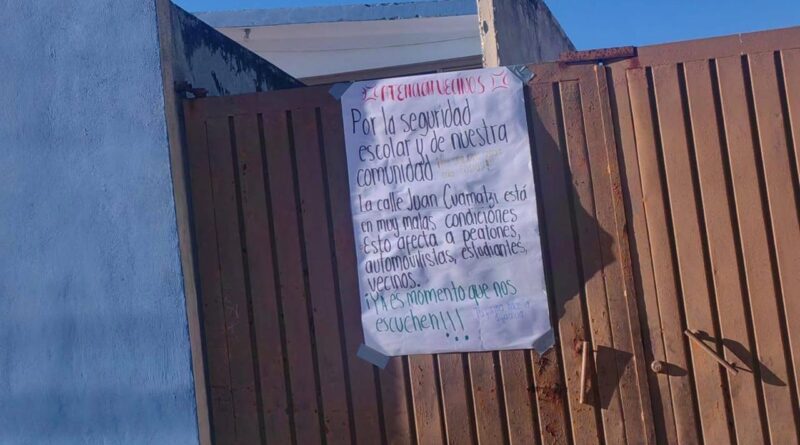 ATENCION VECINOS
Por la seguridad
escolar y de nuestra
comunidad
La calle Juan Cuamatzi está
en muy malas condiciónes
Esto afecta a peatones,
automovilistas, estudiantes,
vecinos.
¡YA es momento que nos
escuchen!!!